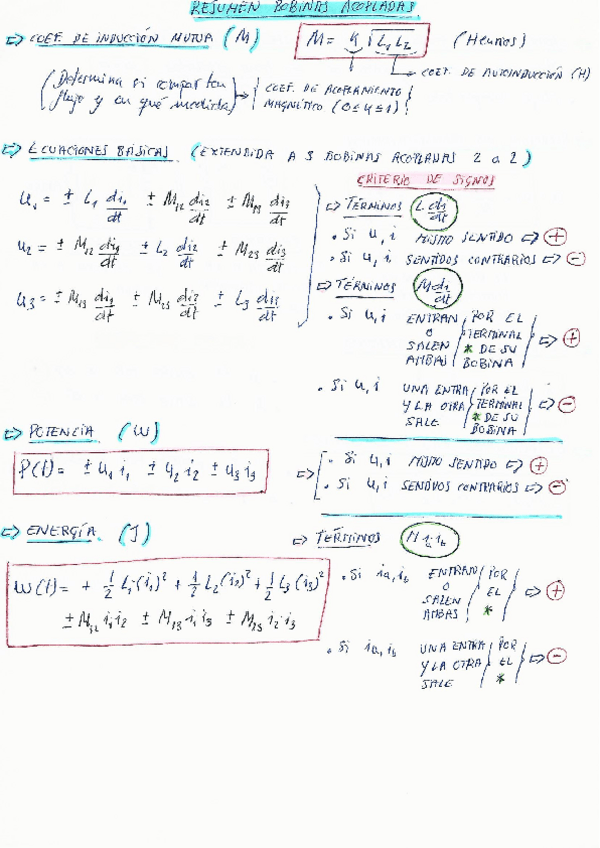 RESUMEN BOBINAS ACOPLADAS
⇨ COEF. DE INDUCCIÓN MUTUA (M)
M = K √L₁L₂ (Henrios)
COEF. DE AUTOINDUCCIÓN (H)
(Determina si comparten flujo y en qué medida)
COEF. DE ACOPLAMIENTO
MAGNÉTICO (0≤K≤1)
⇨ ECUACIONES BÁSICAS (EXTENDIDA A 3 BOBINAS ACOPLADAS 2 a 2)
u₁ = ± L₁ di₁/dt ± M₁₂ di₂/dt ± M₁₃ di₃/dt
u₂ = ± M₁₂ di₁/dt ± L₂ di₂/dt ± M₂₃ di₃/dt
u₃ = ± M₁₃ di₁/dt ± M₂₃ di₂/dt ± L₃ di₃/dt
CRITERIO DE SIGNOS
⇨ TÉRMINOS L di/dt
• Si u, i MISMO SENTIDO ⇨ +
• Si u, i SENTIDOS CONTRARIOS ⇨ -
⇨ TÉRMINOS M di/dt
• Si u, i ENTRAN O SALEN AMBAS POR EL TERMINAL * DE SU BOBINA ⇨ +
• Si u, i UNA ENTRA Y LA OTRA SALE POR EL TERMINAL * DE SU BOBINA ⇨ -
⇨ POTENCIA (W)
P(t) = ± u₁ i₁ ± u₂ i₂ ± u₃ i₃
• Si u, i MISMO SENTIDO ⇨ +
• Si u, i SENTIDOS CONTRARIOS ⇨ -
⇨ ENERGÍA (J)
W(t) = + 1/2 L₁(i₁)² + 1/2 L₂(i₂)² + 1/2 L₃(i₃)²
± M₁₂ i₁ i₂ ± M₁₃ i₁ i₃ ± M₂₃ i₂ i₃
⇨ TÉRMINOS M iₐ i_b
• Si iₐ, i_b ENTRAN O SALEN AMBAS POR EL * ⇨ +
• Si iₐ, i_b UNA ENTRA Y LA OTRA SALE POR EL * ⇨ -